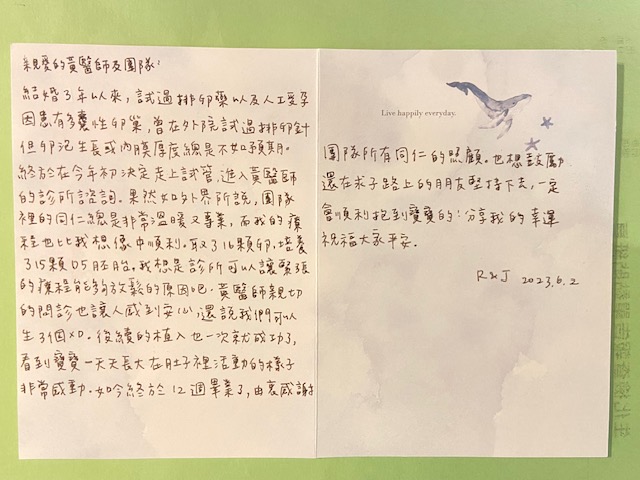 親愛的黃醫師及團隊:
結婚3年以來,試過排卵藥以及人工受孕
因患有多囊性卵巢,曾在外院試過排卵針
但卵泡生長或內膜厚度總是不如預期.
終於在今年初決定走上試管,進入黃醫師
的診所諮詢.果然如外界所說,團隊
裡的同仁總是非常溫暖又專業,而我的療
程也比我想像中順利.取了16顆卵,培養
了15顆D5胚胎,我想是診所可以讓緊張
的療程能夠放鬆的原因吧.黃醫師親切
的問診也讓人感到安心,還說我們可以
生3個XD.後續的植入也一次就成功了,
看到寶寶一天天長大在肚子裡活動的樣子
非常感動.如今終於12週畢業了,由衷感謝
Live happily everyday.
團隊所有同仁的照顧.也想鼓勵
還在求子路上的朋友堅持下去,一定
會順利抱到寶寶的!分享我的幸運
祝福大家平安.
R&J 2023.6.2